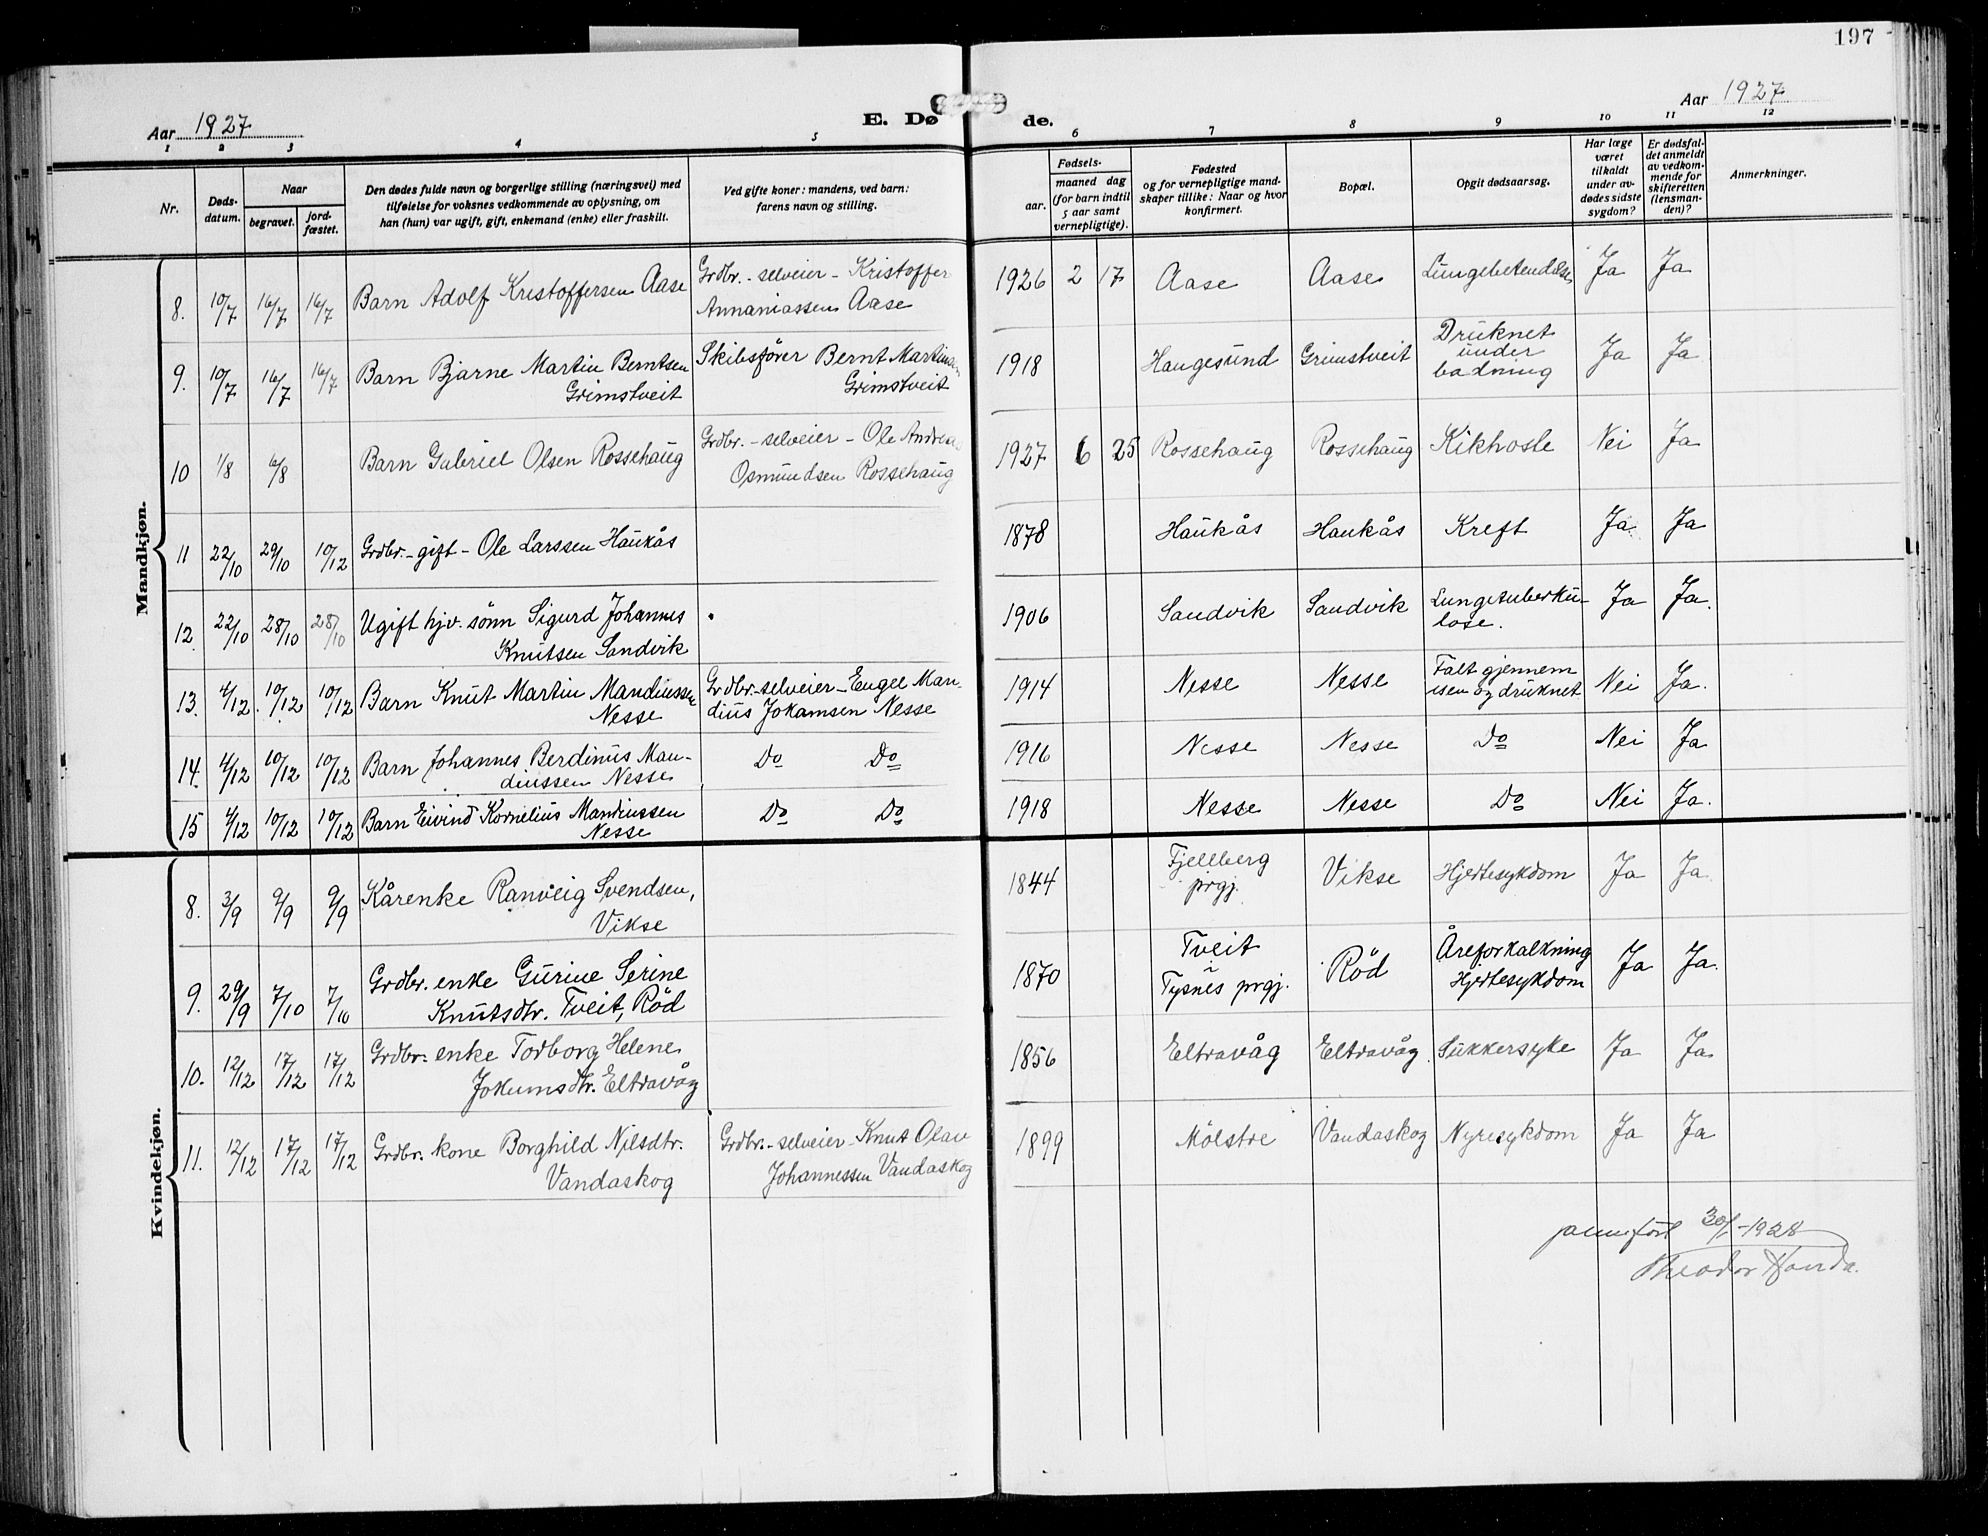 197
Aar 1927
E. Dø de.
Aar 1927
1 2 3 4 5 6 7 8 9 10 11 12
Nr.
Døds-
datum.
Naar
begravet.
jord-
fæstet.
Den dødes fulde navn og borgerlige stilling (næringsvei) med
tilføielse for voksnes vedkommende av oplysning, om
han (hun) var ugift, gift, enkemand (enke) eller fraskilt.
Ved gifte koner: mandens, ved barn:
farens navn og stilling.
Fødsels-
aar.
maaned dag
(for barn indtil
5 aar samt
vernepligtige).
Fødested
og for vernepligtige mand-
skaper tillike: Naar og hvor
konfirmert.
Bopæl.
Opgit dødsaarsag.
Har læge
været
tilkaldt
under av-
dødes sidste
sygdom?
Er dødsfal-
det anmeldt
av vedkom-
mende for
skifteretten
(lensman-
den)?
Anmerkninger.
Mandkjøn.
8. 10/7 16/7 16/7 Barn Adolf Kristoffersen Aase
Grdbr. - selveier - Kristoffer
Annaniassen Aase
1926 2 17 Aase Aase Lungebetendelse Ja Ja
9. 10/7 16/7 16/7 Barn Bjarne Martin Berntsen
Grimstveit
Skibsfører Bernt Martinsen
Grimstveit
1918 Haugesund Grimstveit
Druknet
under
badning
Ja Ja
10 1/8 6/8 Barn Gabriel Olsen Rossehaug
Grdbr. - selveier - Ole Andreas
Osmundsen Rossehaug
1927 6 25 Rossehaug Rossehaug Kikhoste Nei Ja
11 22/10 29/10 10/12 Grdbr. - gift - Ole Larssen Haukås
1878 Haukås Haukås Kreft Ja Ja
12. 22/10 28/10 28/10 Ugift hjv. sönn Sigurd Johannes
Knutsen Sandvik
1906 Sandvik Sandvik Lungetuberku-
lose.
Ja Ja.
13. 4/12 10/12 10/12 Barn Knut Martin Mandiussen
Nesse
Grdbr. - selveier - Engel Man-
dius Jokamsen Nesse
1914 Nesse Nesse Falt gjennem
isen og druknet
Nei Ja.
14. 4/12 10/12 10/12 Barn Johannes Berdinus Man-
diussen Nesse
Do Do
1916 Nesse Nesse Do Nei Ja
15 4/12 10/12 10/12 Barn Eivind Kornelius Mandiussen
Nesse
Do Do
1918 Nesse Nesse Do Nei Ja.
Kvindekjøn.
8. 3/9 9/9 9/9 Kårenke Ranveig Svendsen,
Vikse
1844 Fjellberg
prgj.
Vikse Hjertesykdom Ja Ja
9. 29/9 7/10 7/10 Grdbr. enke Gurine Serine
Knutsdtr. Tveit, Röd
1870 Tveit
Tysnes prgj.
Röd Åreforkalkning
Hjertesykdom
Ja Ja.
10. 12/12 17/12 17/12 Grdbr. enke Torborg Helene
Jokumsdtr. Eltravåg
1856 Eltravåg Eltravåg Sukkersyke Ja Ja
11. 12/12 17/12 17/12 Grdbr. kone Borghild Nilsdtr.
Vandaskog
Grdbr. - selveier - Knut Olav
Johannessen Vandaskog
1899 Mölstre Vandaskog Nyresykdom Ja Ja
30/1 - 1928
Theodor